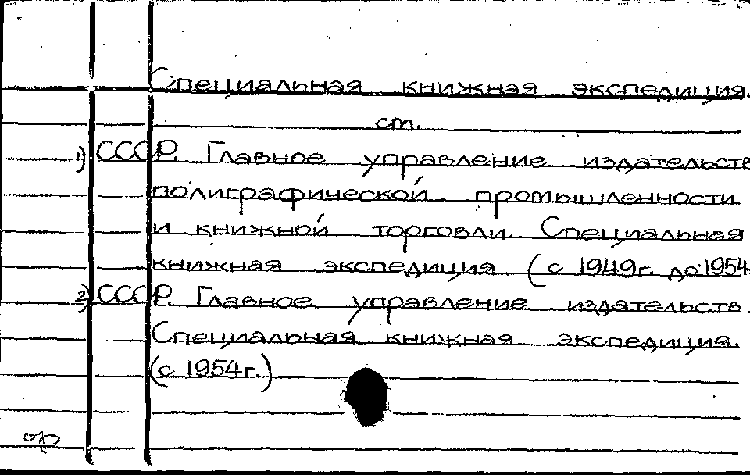 Специальная книжная экспедиция.
см.
1) СССР. Главное управление издательств
полиграфической промышленности
и книжной торговли. Специальная
книжная экспедиция (с 1949г. до 1954
2) СССР. Главное управление издательств.
Специальная книжная экспедиция.
(с 1954г.)